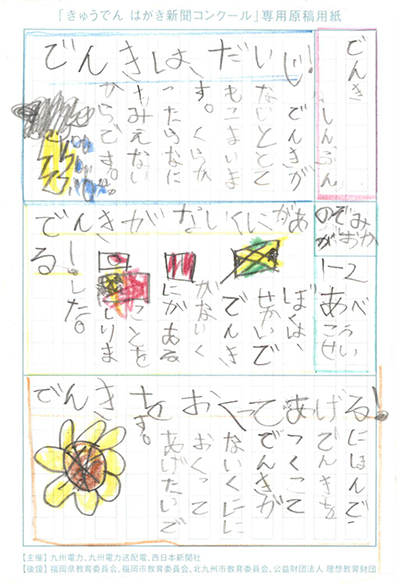 「きゅうでん はがき新聞コンクール」専用原稿用紙
でんき
しんぶん
でんきは、だいじ!
でんきが
ないととて
もこまいま
す。くらか
ったらなに
もみえない
からです。
1-2
でんきがないくにがある
ぼくは、
せかいで
でんき
がないく
にがある
ことを
しりま
した。
でんきをおくってあげる!
にほんで
でんきを
つくって
でんきが
ないくにに
おくって
あげたいで
す。
【主催】九州電力、九州電力送配電、西日本新聞社
【後援】福岡県教育委員会、福岡市教育委員会、北九州市教育委員会、公益財団法人 理想教育財団